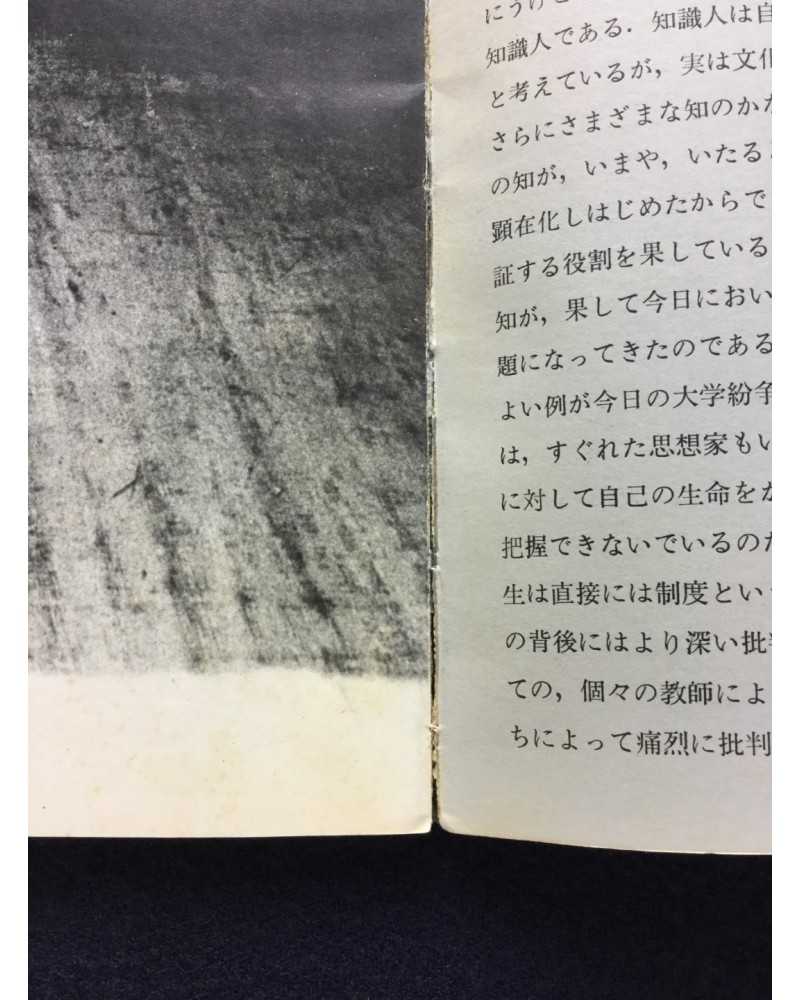 にうけ
知識人である．知識人は自
と考えているが，実は文化
さらにさまざまな知のかな
の知が，いまや，いたる
顕在化しはじめたからで
証する役割を果している
知が，果して今日におい
題になってきたのである
よい例が今日の大学紛争
は，すぐれた思想家もい
に対して自己の生命をか
把握できないでいるのだ
生は直接には制度とい
の背後にはより深い批判
ての，個々の教師によ
ちによって痛烈に批判